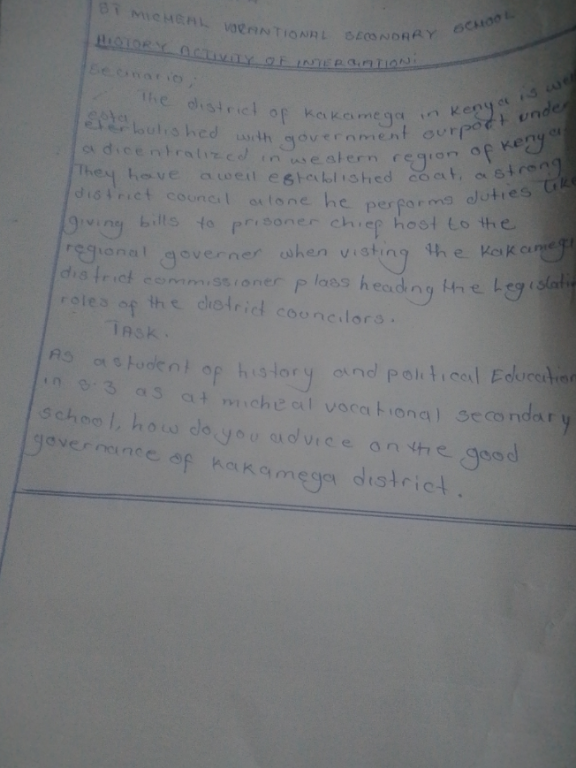 ST MICHEAL VORANTIONAL SECONDARY SCHOOL
HISTORY ACTIVITY OF INTERGATION:
Secinario;
The district of Kakamega in Kenya is well
esta
eterbulished with government surport under
a dicentralized in western region of Kenya.
They have a well established coat, a strong
district council alone he performs duties like
giving bills to prisoner chief host to the
regional governer when visting the Kakamega
district commissioner plass heading the Legislati
roles of the district councilors.
TASK.
As a student of history and political Education
in S.3 as at micheal vocational secondary
school, how do you advice on the good
governance of Kakamega district.